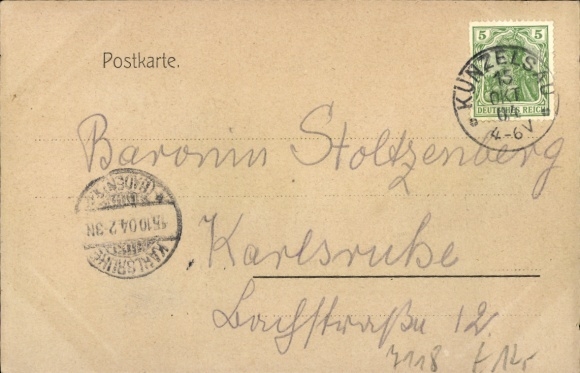 Postkarte.
5 5
DEUTSCHES REICH
KÜNZELSAU
15
OKT
04
4-6V
Baronin Stoltzenberg
KARLSRUHE
15.10.04.2-3N
(BADEN)
Karlsruhe
Bachstraße 12.
7118